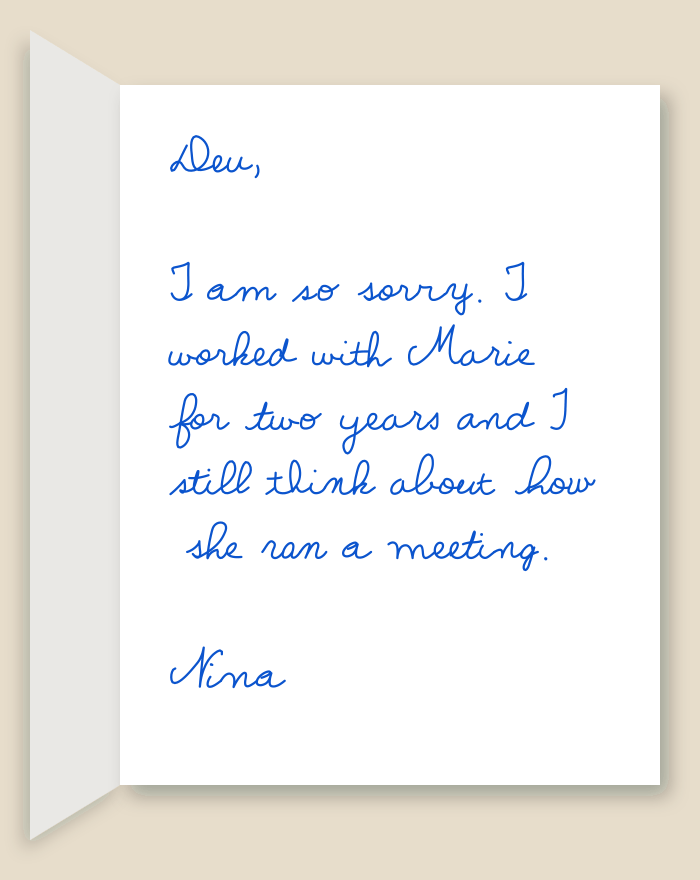 Dev,
I am so sorry. I
worked with Marie
for two years and I
still think about how
she ran a meeting.
Nina